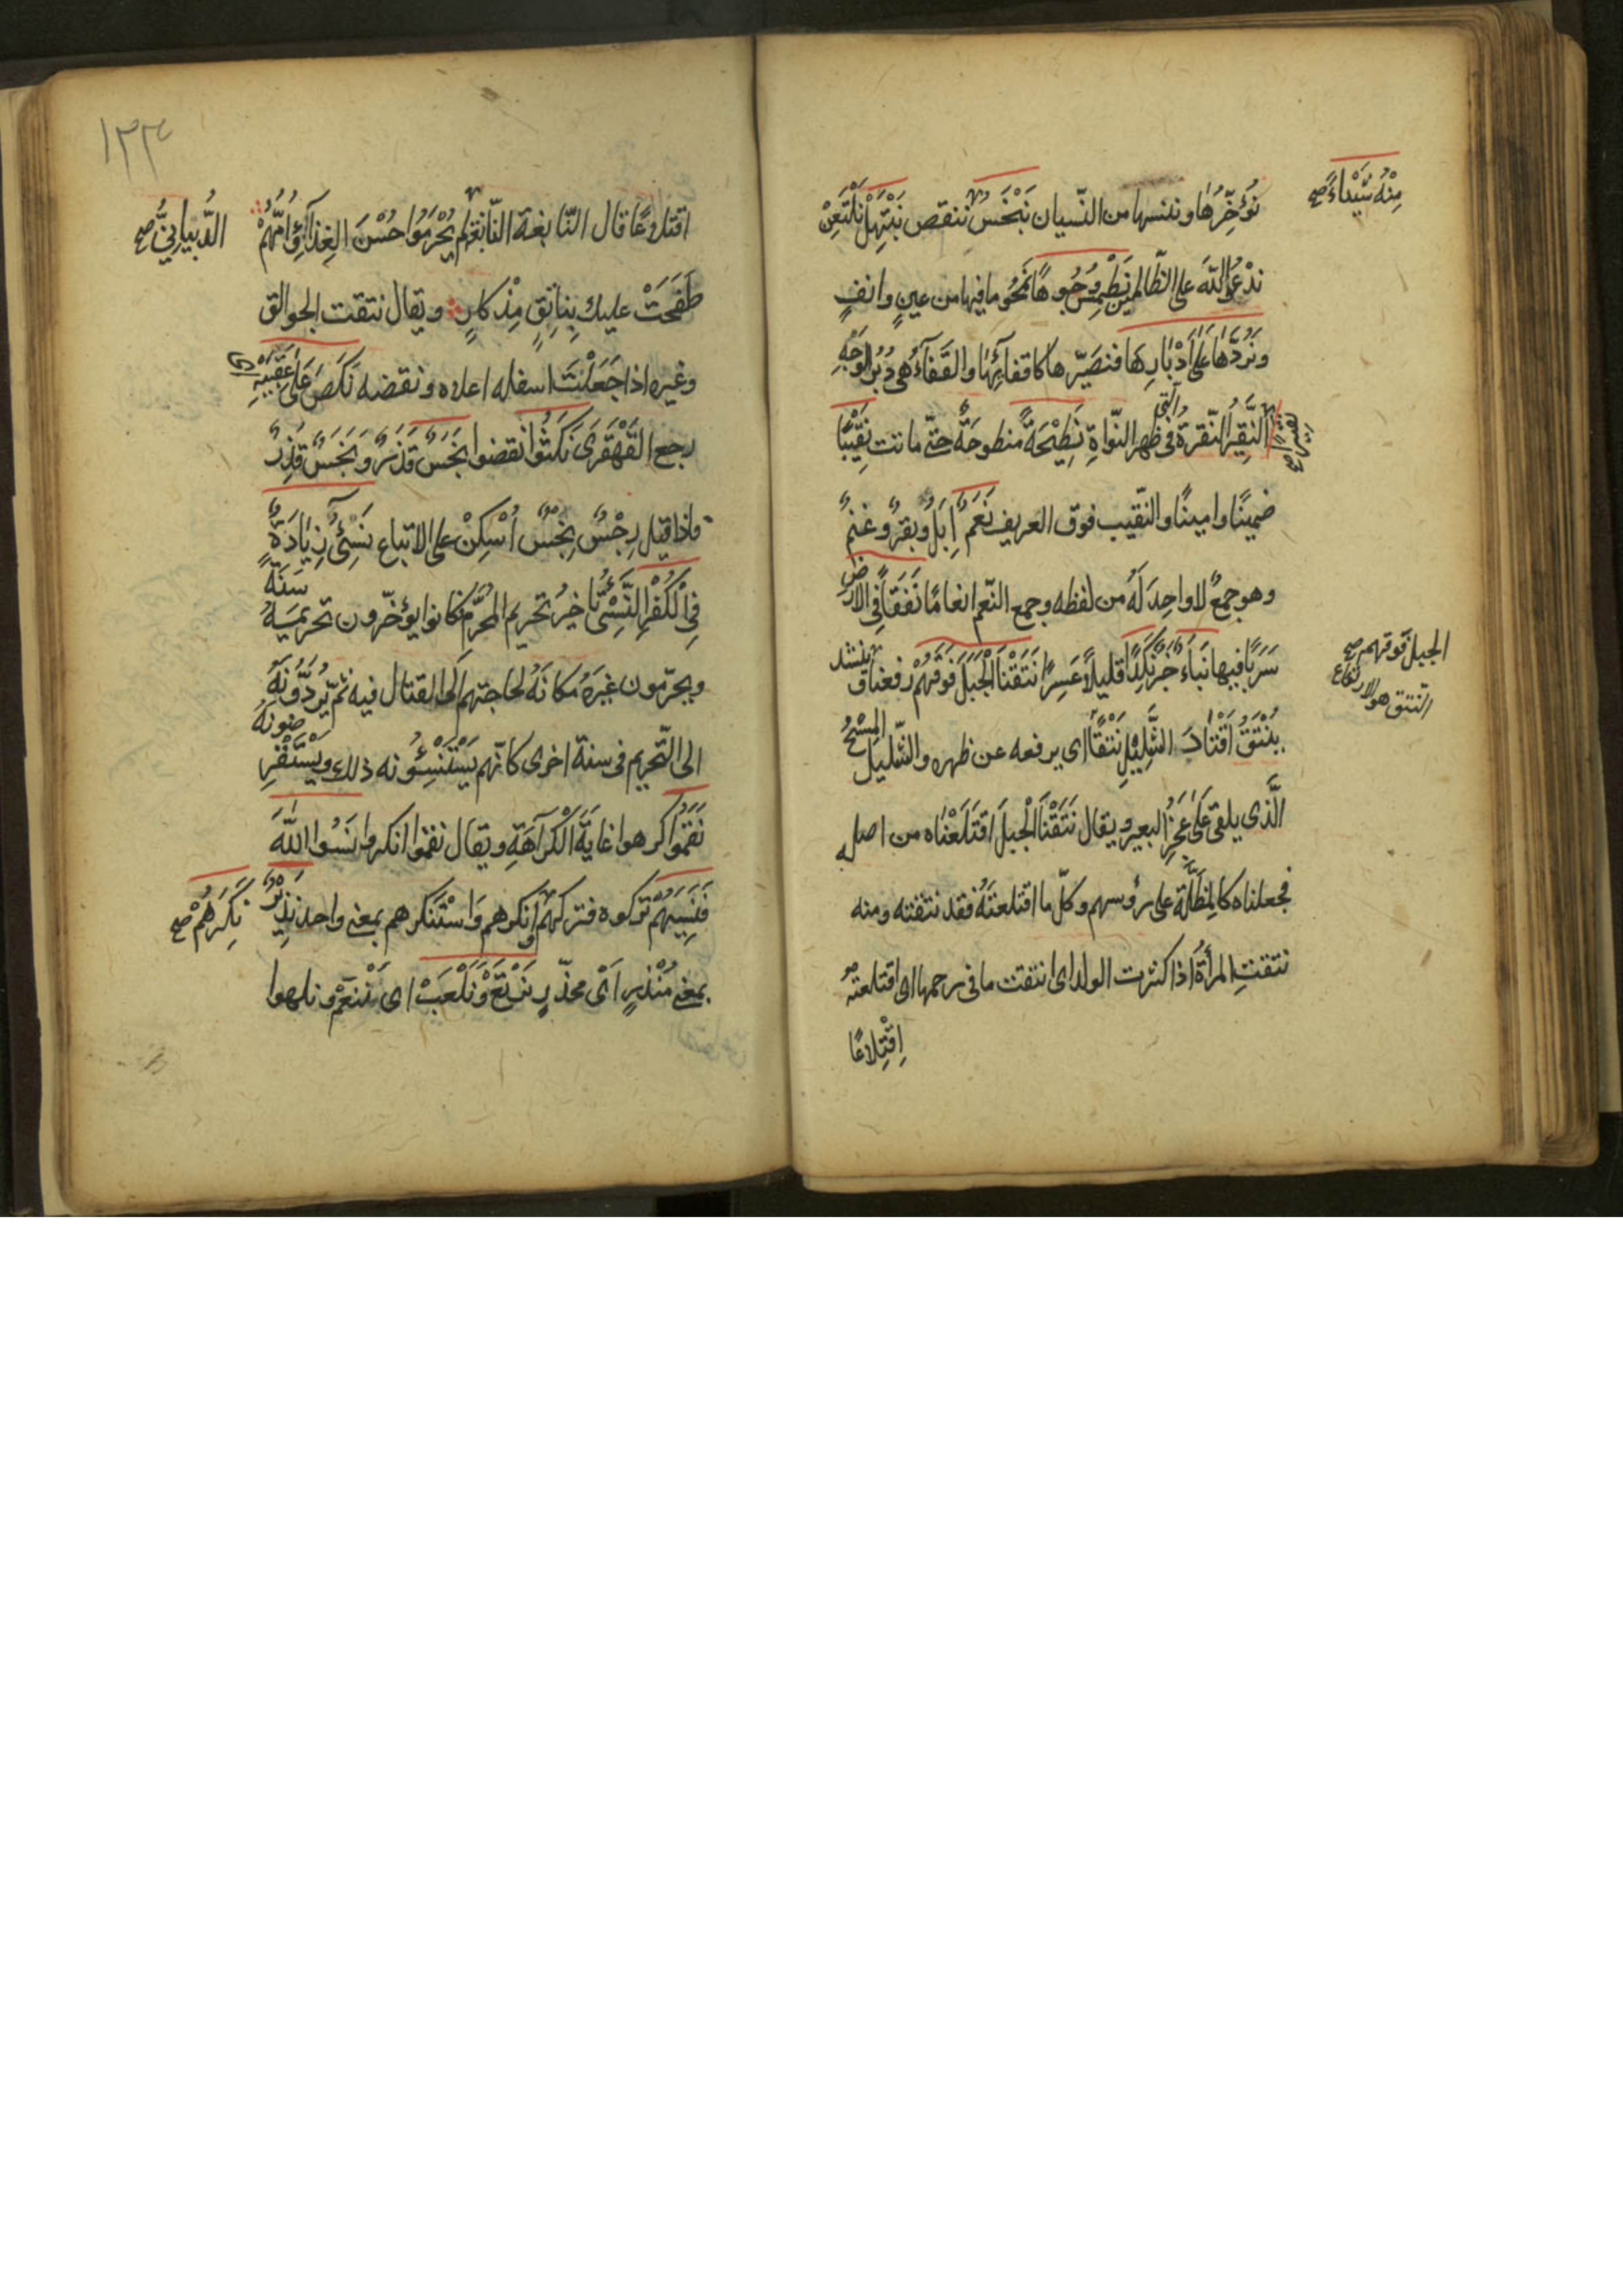 نُؤَخِّرُهَا وننسها من النّسيان نَبْخَسُ ننقص نَبْتَهِلْ نَلْتَعِنْ
مِنْهُ شَيْئاً صح
ندعُو اللّهَ على الظّالمين نَطْمِسَ وُجُوهًا نَمْحُو ما فيها من عينٍ وانفٍ
ونَرُدَّهَا عَلَى اَدْبَارِهَا فنصَيّرها كاقفائِهَا والقَفَآءُ هى دُبُر الوَجْهِ
النَّقِيْرُ النّقرةُ التى فى ظهر النّواةِ نَطِيْحَةً منطوحَةٌ حتّى ماتت نَقِيْبًا
ضمينًا وامينًا والنّقيب فوق العريف نَعَمٌ اِبَلٌ وبقرٌ وغنمٌ
وهو جمعٌ لا واحِدَ لَهُ من لفظه وجمع النّعم انعامًا نَفَقًا فِى الارض
سَرَبًا فيها نَبَاءٌ خَبَرٌ نَكِدًا قليلاً عَسِرًا نَتَقْنَا الْجَبَلَ فَوْقَهُمْ رفعنا ق ينشد
الجبل فوقهم صح
النّتق هو الارتفاع
يَنْتَقُ اَقْتَادَ الشَّلِيْلِ نَتْقًا اى يرفعه عن ظهره والشّليل المِسْحُ
الَّذى يلقى عَلَى عَجُزِ البعير ويقال نَتَقْنَا الْجبلَ اقتَلَعْنَاه من اصله
فجعلناه كالمِظَلَّةِ على رؤسهم وكلّ ما اقتلعتَهُ فقد نتقته ومنه
نتقتِ المرأةُ اذا كثرت الولد اى انتقت ما فى رحمها اى اقتلعته
اِقْتِلاعًا
١٣٣
اقتلاعًا قال النّابغة النّابغة لم يُحْرَمُوا حُسْنَ الغِذَآءِ وَاُمُّهُمْ
الذُّبيانِىُّ صح
طَفَحَتْ عليك بِنَاتِقٍ مِذْكارٍ ويقال نتقت الجوالق
وغيره اذا جَعَلْتَ اسفله اعلاه ونقضه نَكَصَ عَلَى عَقِبَيْهِ
رجع القَهْقَرَى نَكَثُوا نقضوا نَجَسٌ قَذَرٌ وَنَجِسٌ قَذِرٌ
فاذا قيل رِجْسٌ نِجْسٌ اُسْكِنْ على الاتباع نَسِئٌ زِيَادَةٌ
فِى الْكُفْرِ النَّسِئُ تاخيرُ تحريم المُحَرَّم فكانوا يؤخّرون تحريمَهُ سَنَةً
ويحرّمون غيَرهُ مكانَهُ لحاجتهم اِلى القتال فيه ثمّ يَرُدُّونَهُ
الى التّحريم فى سنة اخرى كانّهم يَسْتَنْسِئُونه ذلك ويَسْتَقْرِضونهُ
نَقَمُوا كرهوا غايَةَ الْكَرَاهَةِ ويقال نقموا انكروا نَسُوا اللّهَ
فَنَسِيَهُمْ تركوه فتركهم وانكرهم وَاسْتَنْكَرهم بمعنى واحد نَذِيْرٌ
نَكِرَهُمْ صح
بمعنى مُنْذِرٍ اَىْ محذّرٍ نَرْتَعْ وَنَلْعَبْ اى نَنَعّمْ ونلهوا